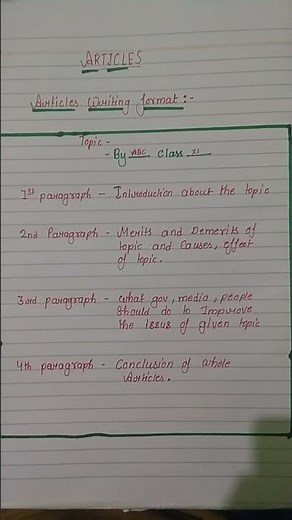 ARTICLES
Articles Writing format :-
Topic -
- By ABC Class XI
1st paragraph - Introduction about the topic
2nd Paragraph - Merits and Demerits of
topic and Causes, effect
of topic.
3rd paragraph - what gov, media, people
should do to Improve
the issue of given topic
4th paragraph - Conclusion of whole
Articles.